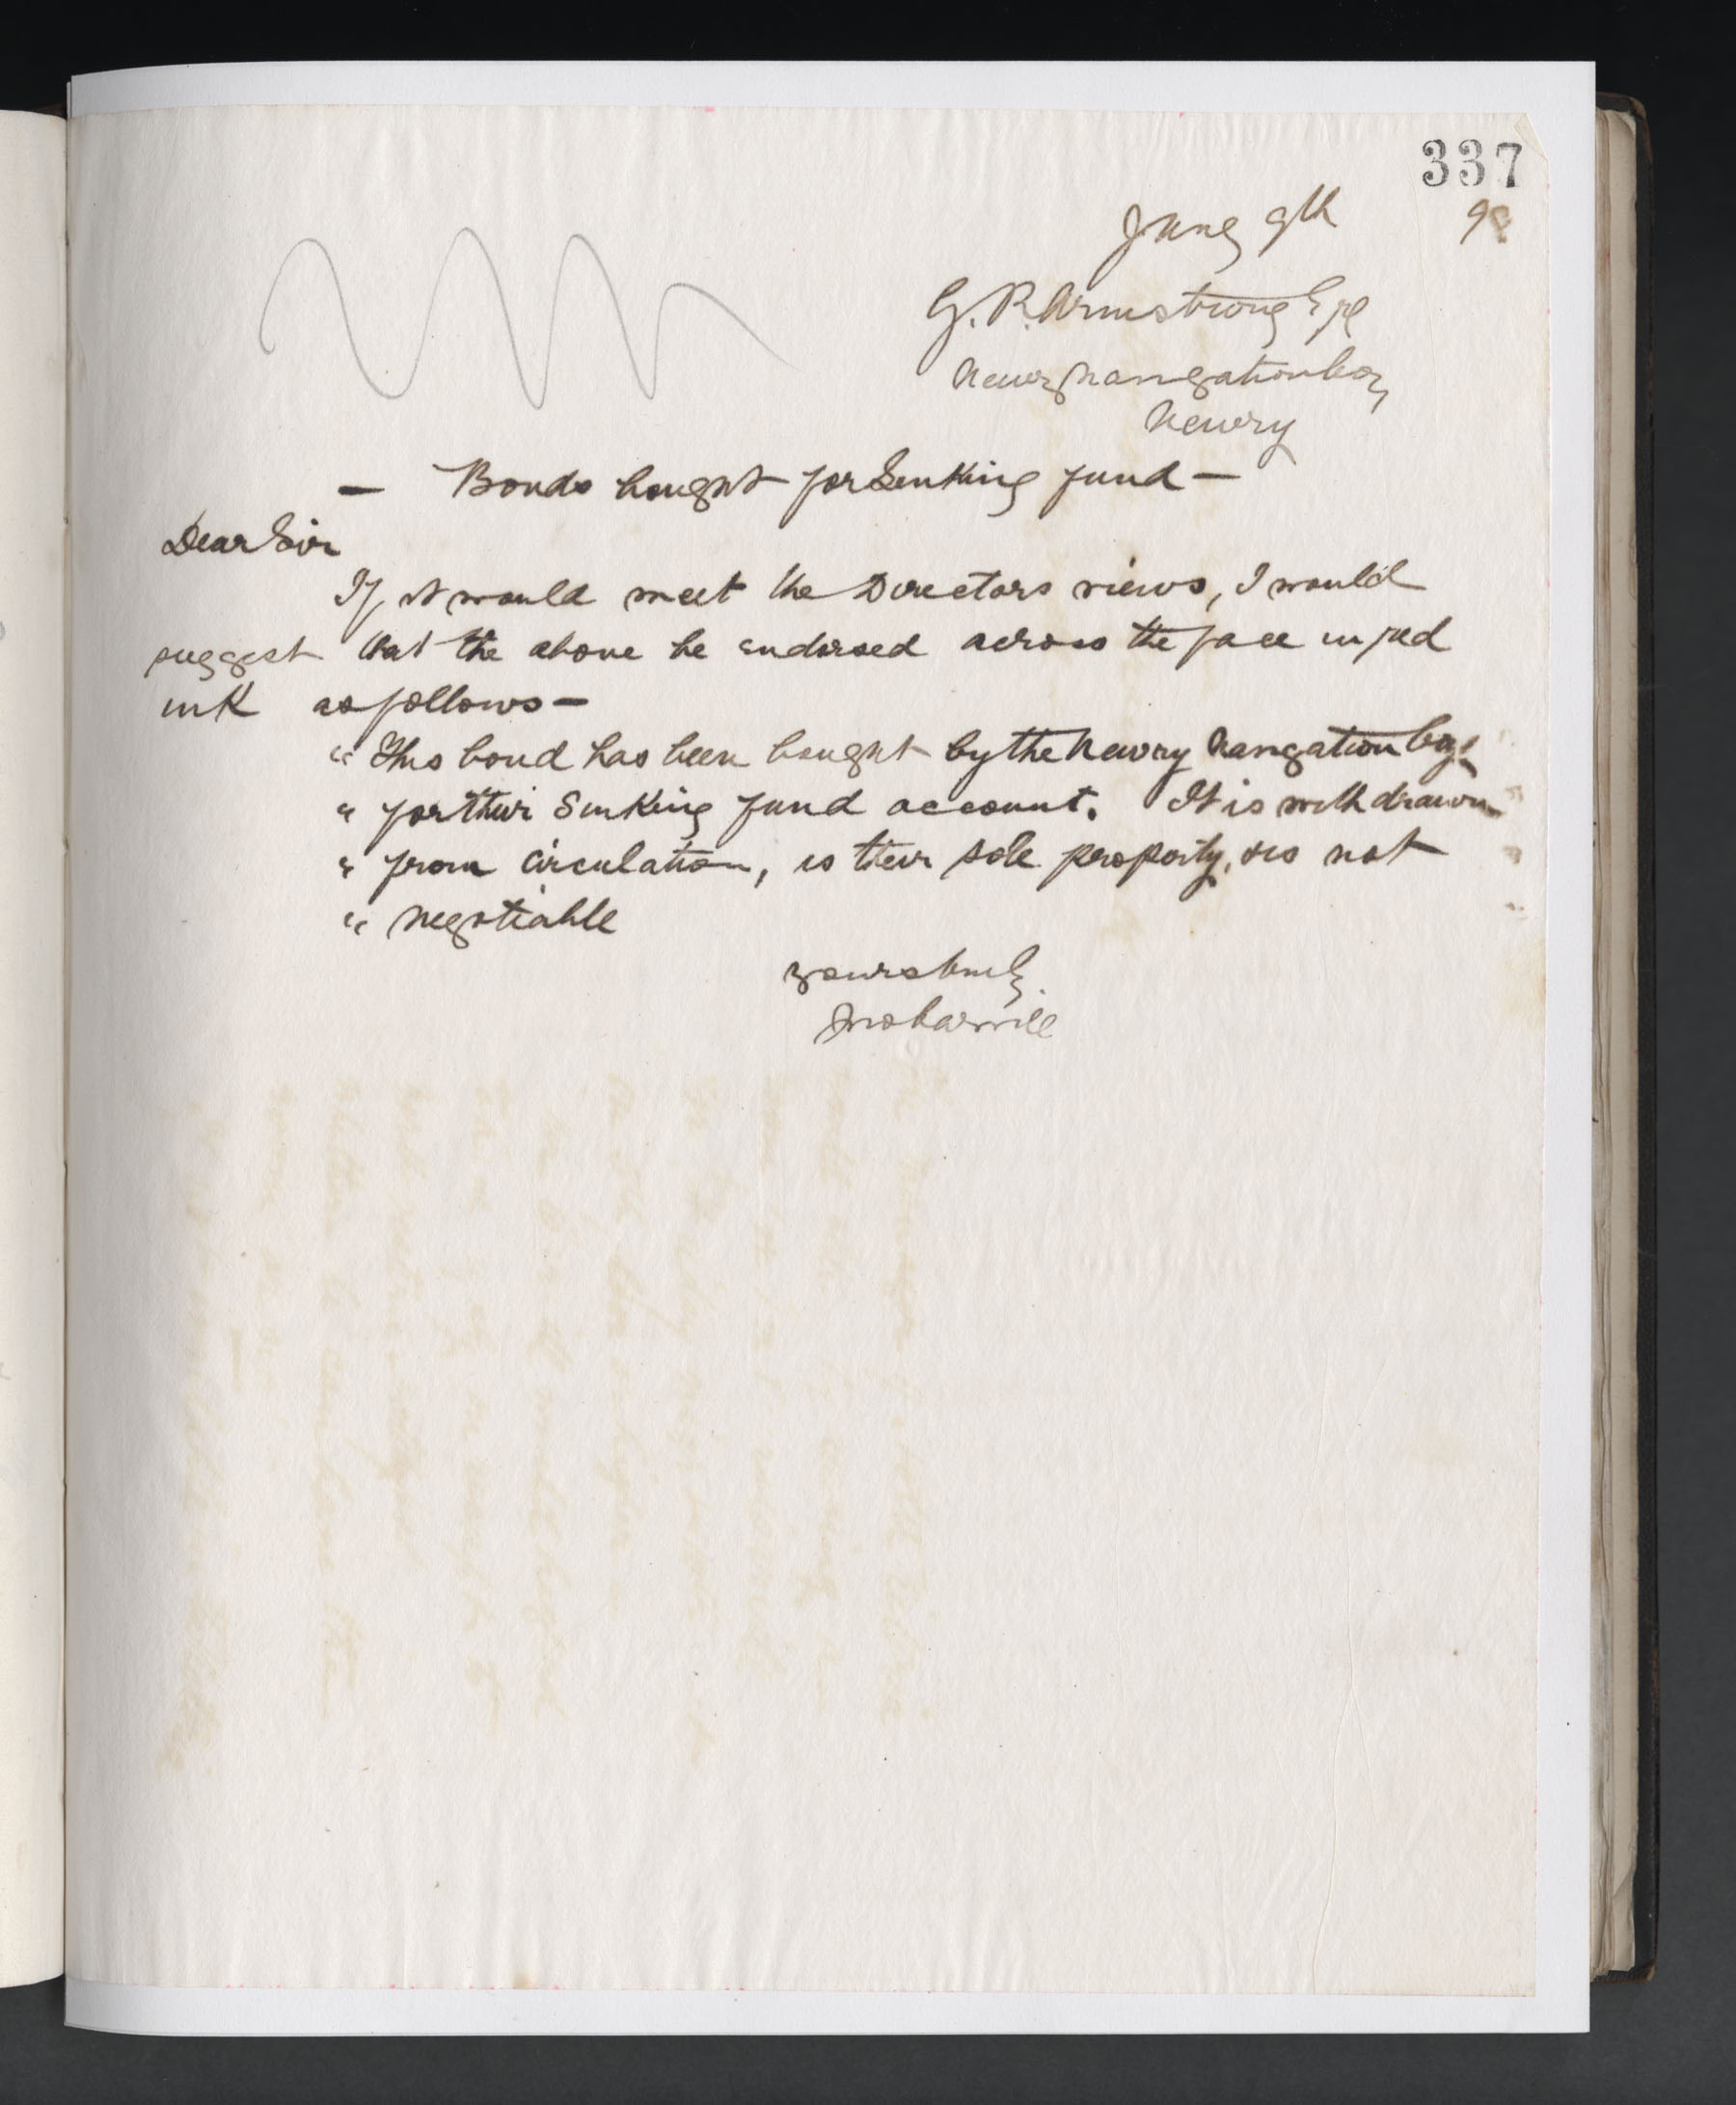 337
June 9th 98
G. R. Armstrong Esq
Newry Navigation Coy
Newry
— Bonds bought for Sinking fund —
Dear Sir
If it would meet the Directors views, I would
suggest that the above be endorsed across the face in red
ink as follows —
" This bond has been bought by the Newry Navigation Coy
" for their Sinking fund account. It is withdrawn
" from circulation, is their sole property, & is not
" negotiable
Yours truly